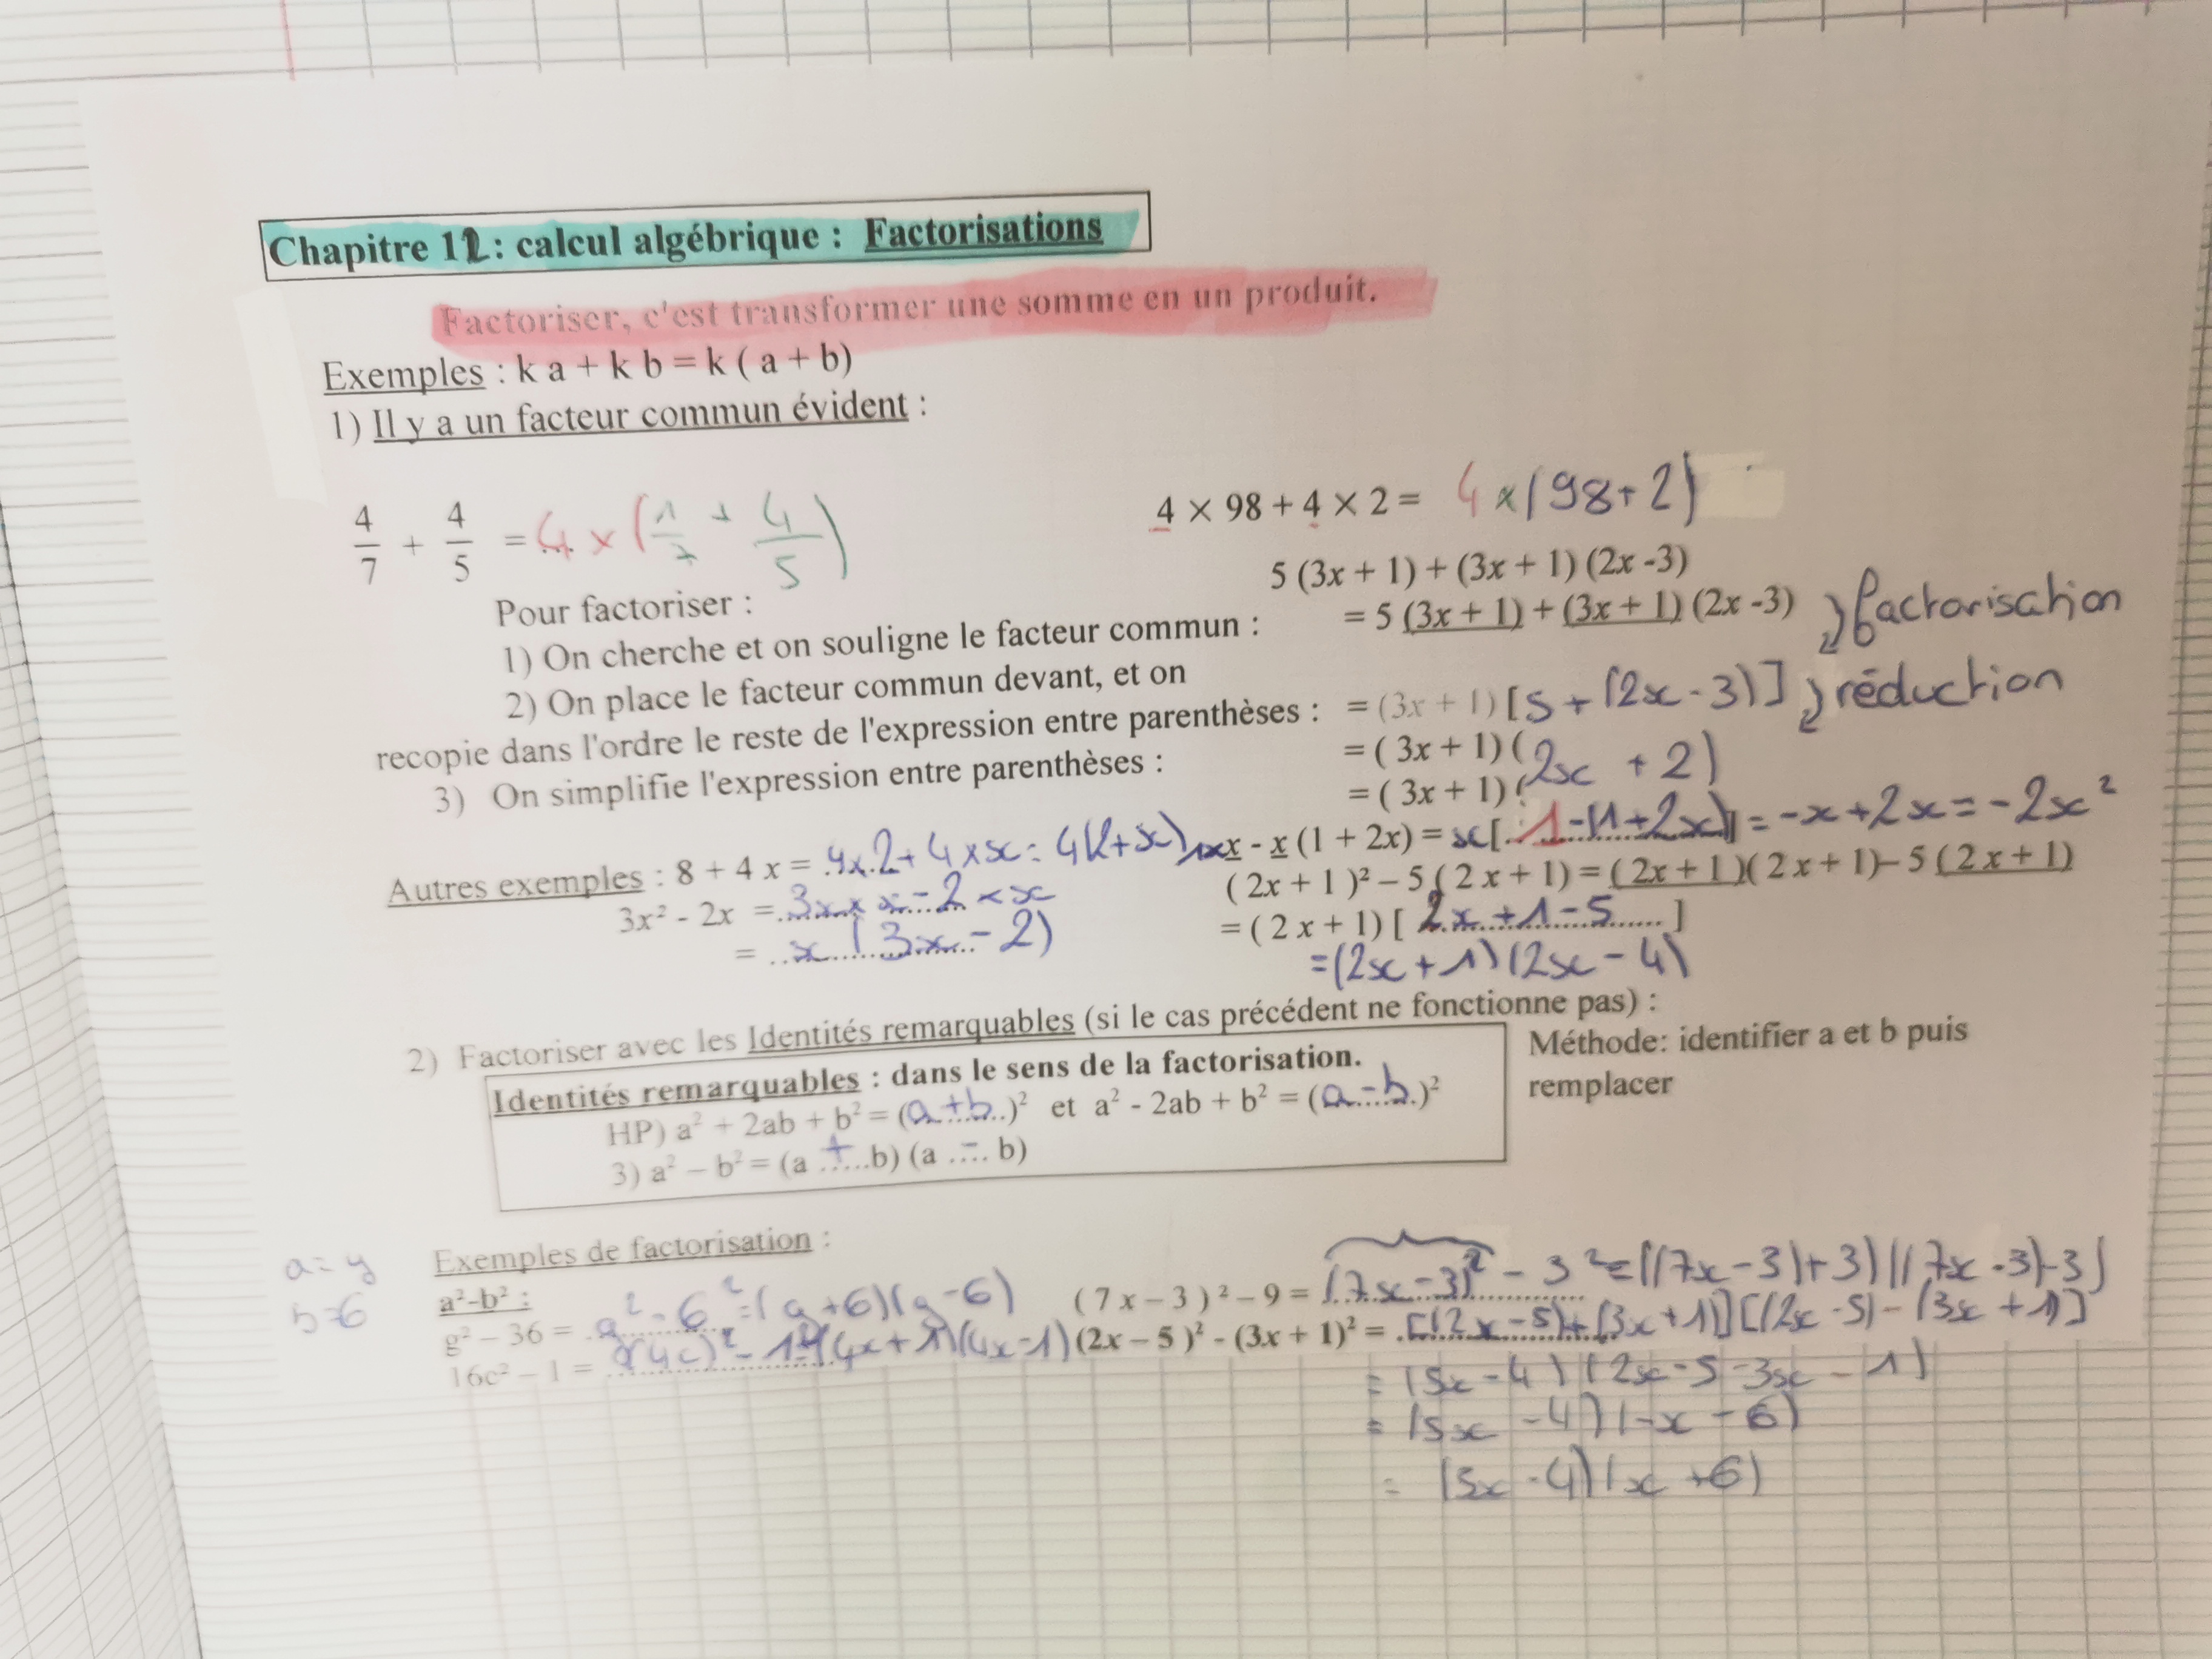 Chapitre 12 : calcul algébrique : Factorisations
Factoriser, c'est transformer une somme en un produit.
Exemples : k a + k b = k ( a + b)
1) Il y a un facteur commun évident :
4/7 + 4/5 = 4 × (1/7 + 4/5)
4 × 98 + 4 × 2 = 4 × (98 + 2)
5 (3x + 1) + (3x + 1) (2x -3)
Pour factoriser :
1) On cherche et on souligne le facteur commun : = 5 (3x + 1) + (3x + 1) (2x -3) factorisation
2) On place le facteur commun devant, et on
recopie dans l'ordre le reste de l'expression entre parenthèses : = (3x + 1) [5 + (2x - 3)] réduction
3) On simplifie l'expression entre parenthèses : = ( 3x + 1) (2x + 2)
= ( 3x + 1) (
Autres exemples : 8 + 4 x = 4x2 + 4 × x = 4(2+x)
1×x - x (1 + 2x) = x[1-(1+2x)] = -x + 2x = -2x²
3x² - 2x = 3x × x - 2 × x
= x (3x - 2)
( 2x + 1 )² – 5 ( 2 x + 1) = ( 2x + 1 )( 2 x + 1) – 5 ( 2 x + 1)
= ( 2 x + 1) [ 2x + 1 - 5 ]
= (2x + 1) (2x - 4)
2) Factoriser avec les Identités remarquables (si le cas précédent ne fonctionne pas) :
Identités remarquables : dans le sens de la factorisation.
HP) a² + 2ab + b² = (a+b)² et a² - 2ab + b² = (a-b)²
3) a² – b² = (a + b) (a - b)
Méthode: identifier a et b puis
remplacer
a = y
b = 6
Exemples de factorisation :
a²-b² :
g² – 36 = g² - 6² = (g+6)(g-6)
16c² – 1 = (4c)² - 1² = (4x + 1)(4x - 1)
( 7 x – 3 ) ² – 9 = (7x - 3)² - 3² = ((7x - 3) + 3) ((7x - 3) - 3)
(2x – 5 )² - (3x + 1)² = [(2x - 5) + (3x + 1)] [(2x - 5) - (3x + 1)]
= (5x - 4) (2x - 5 - 3x - 1)
= (5x - 4) (-x - 6)
= (5x - 4) (x + 6)